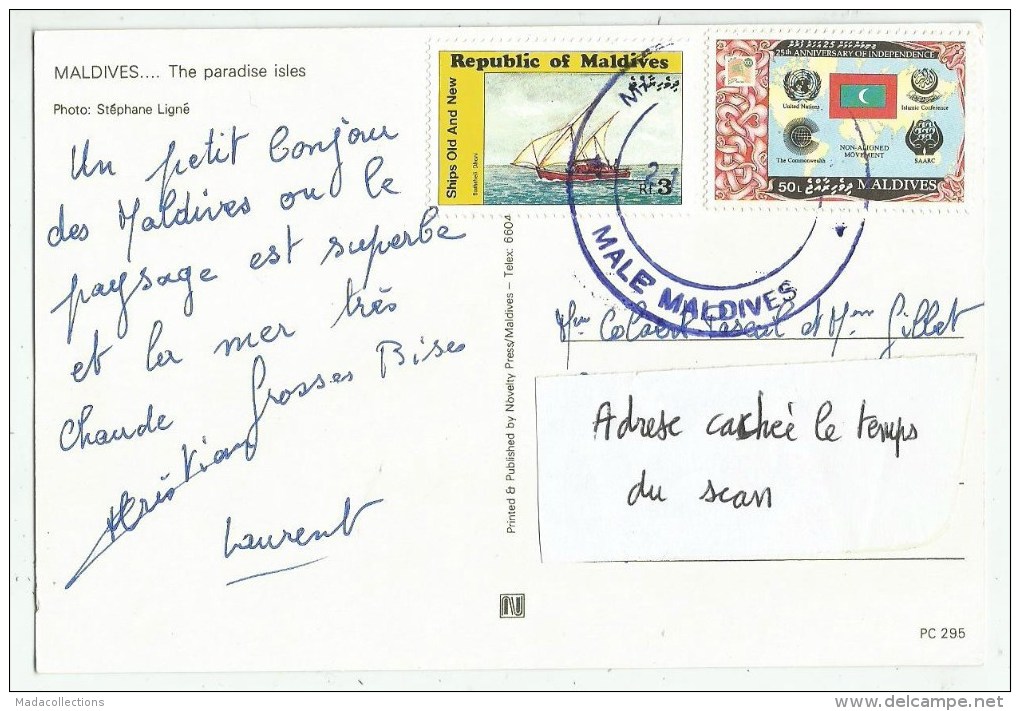 MALDIVES.... The paradise isles
Photo: Stéphane Ligné
Un petit bonjour
des Maldives ou le
paysage est superbe
et la mer très
chaude Grosses Bises
Christian
Laurent
Printed & Published by Novelty Press/Maldives – Telex: 6604
Republic of Maldives
Ships Old And New
ދިވެހިރާއްޖެ
Rf 3
25th ANNIVERSARY OF INDEPENDENCE
United Nations
Islamic Conference
The Commonwealth
NON-ALIGNED
MOVEMENT
SAARC
50L ދިވެހިރާއްޖެ MALDIVES
MALE MALDIVES
et Mme Gillet
Adrese cachée le temps
du scan
PC 295
Madacollections
delcampe.net